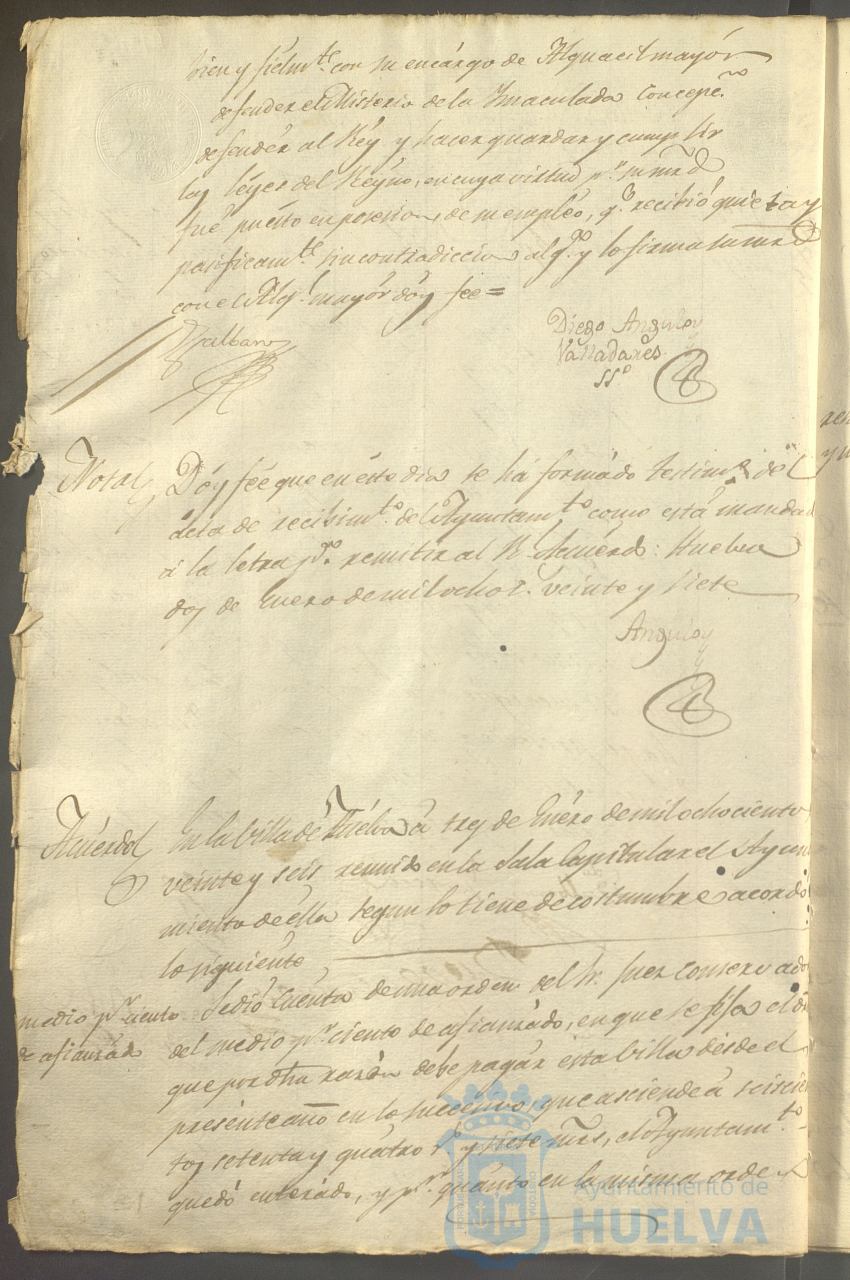 bien y fielmte con su encárgo de Alguacil mayór
defender el Misterio de la Ynmaculada Concepcn
defendér al Rey y hacer guardar y cumplir
las léyes del Reyno, en cuya virtud pr su mrd
fué puésto en posesion de su empléo, qe recibió quieta y
pacificamte sin contradiccion algª y lo firma su mrd
con el Algl mayór doy fee =
Diego Anguloy
Valladares
ssº
Nota
Dóy fée que en éste dia se há formádo testimº del
ácta de recibimto del Ayuntamto como está mandad
á la letra pª remitir al Rl Acuérdo: Huelva
dos de Enero de mil ochos veinte y siete
Anguloy
Acuérdo
En la Villa de Huélva á tres de Enéro de mil ochociento
veinte y seis reunido en la Sala Capitular el Ayun
miento de élla segun lo tiene de costumbre acordó
lo siguiente
medio pr ciento
de afianzado
Se dió cuenta de una orden del Sr. Juez Conservado
del medio pr ciento de afianzádo, en que se fixa el
que por dha razón debe pagár esta Villa désde el
presénte año en lo succesivo, que asciende á seiscien
tos setenta y quátro rs y siete mrs, el Ayuntamto
quedó enterádo, y pr quánto en la misma orde
Ayuntamiento de
HUELVA